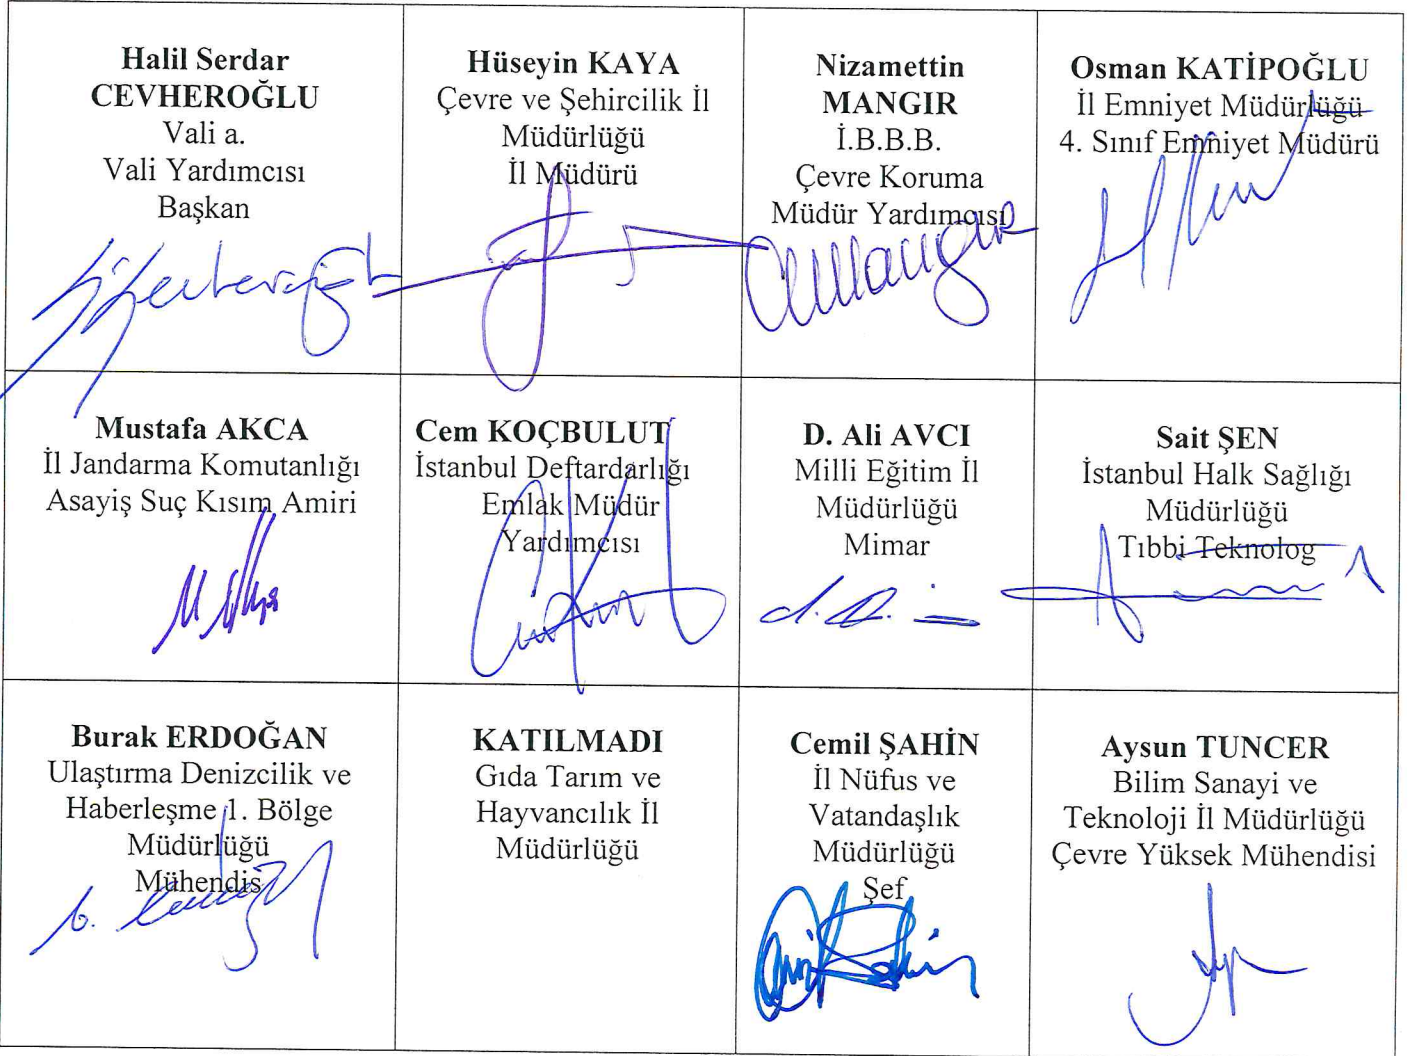 Halil Serdar
CEVHEROĞLU
Vali a.
Vali Yardımcısı
Başkan
Hüseyin KAYA
Çevre ve Şehircilik İl
Müdürlüğü
İl Müdürü
Nizamettin
MANGIR
İ.B.B.B.
Çevre Koruma
Müdür Yardımcısı
Osman KATİPOĞLU
İl Emniyet Müdürlüğü
4. Sınıf Emniyet Müdürü
Mustafa AKCA
İl Jandarma Komutanlığı
Asayiş Suç Kısım Amiri
Cem KOÇBULUT
İstanbul Deftardarlığı
Emlak Müdür
Yardımcısı
D. Ali AVCI
Milli Eğitim İl
Müdürlüğü
Mimar
Sait ŞEN
İstanbul Halk Sağlığı
Müdürlüğü
Tıbbi Teknolog
Burak ERDOĞAN
Ulaştırma Denizcilik ve
Haberleşme 1. Bölge
Müdürlüğü
Mühendis
KATILMADI
Gıda Tarım ve
Hayvancılık İl
Müdürlüğü
Cemil ŞAHİN
İl Nüfus ve
Vatandaşlık
Müdürlüğü
Şef
Aysun TUNCER
Bilim Sanayi ve
Teknoloji İl Müdürlüğü
Çevre Yüksek Mühendisi